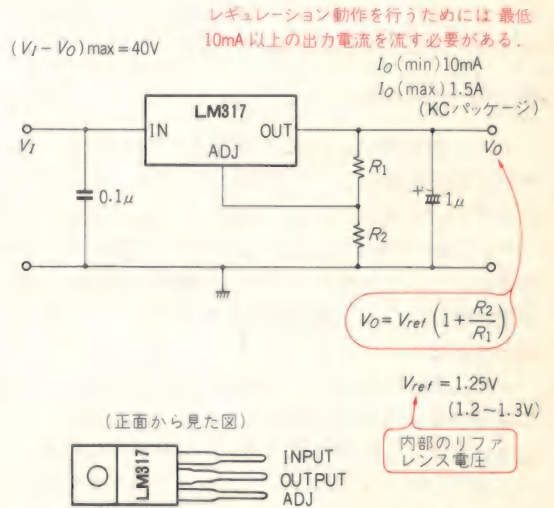 レギュレーション動作を行うためには 最低
10mA以上の出力電流を流す必要がある.
(VI−VO)max=40V
IO(min)10mA
IO(max)1.5A
(KCパッケージ)
LM317
IN
OUT
ADJ
VI
VO
R1
0.1μ
+
1μ
R2
VO=Vref(1+R2/R1)
Vref=1.25V
(1.2~1.3V)
内部のリファ
レンス電圧
(正面から見た図)
LM317
INPUT
OUTPUT
ADJ